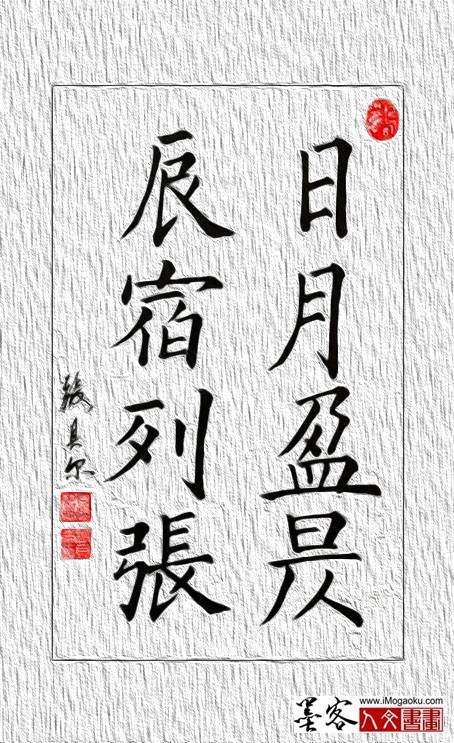 日月盈昃
辰宿列張
墨客
www.iMogaoku.com
人文書畫